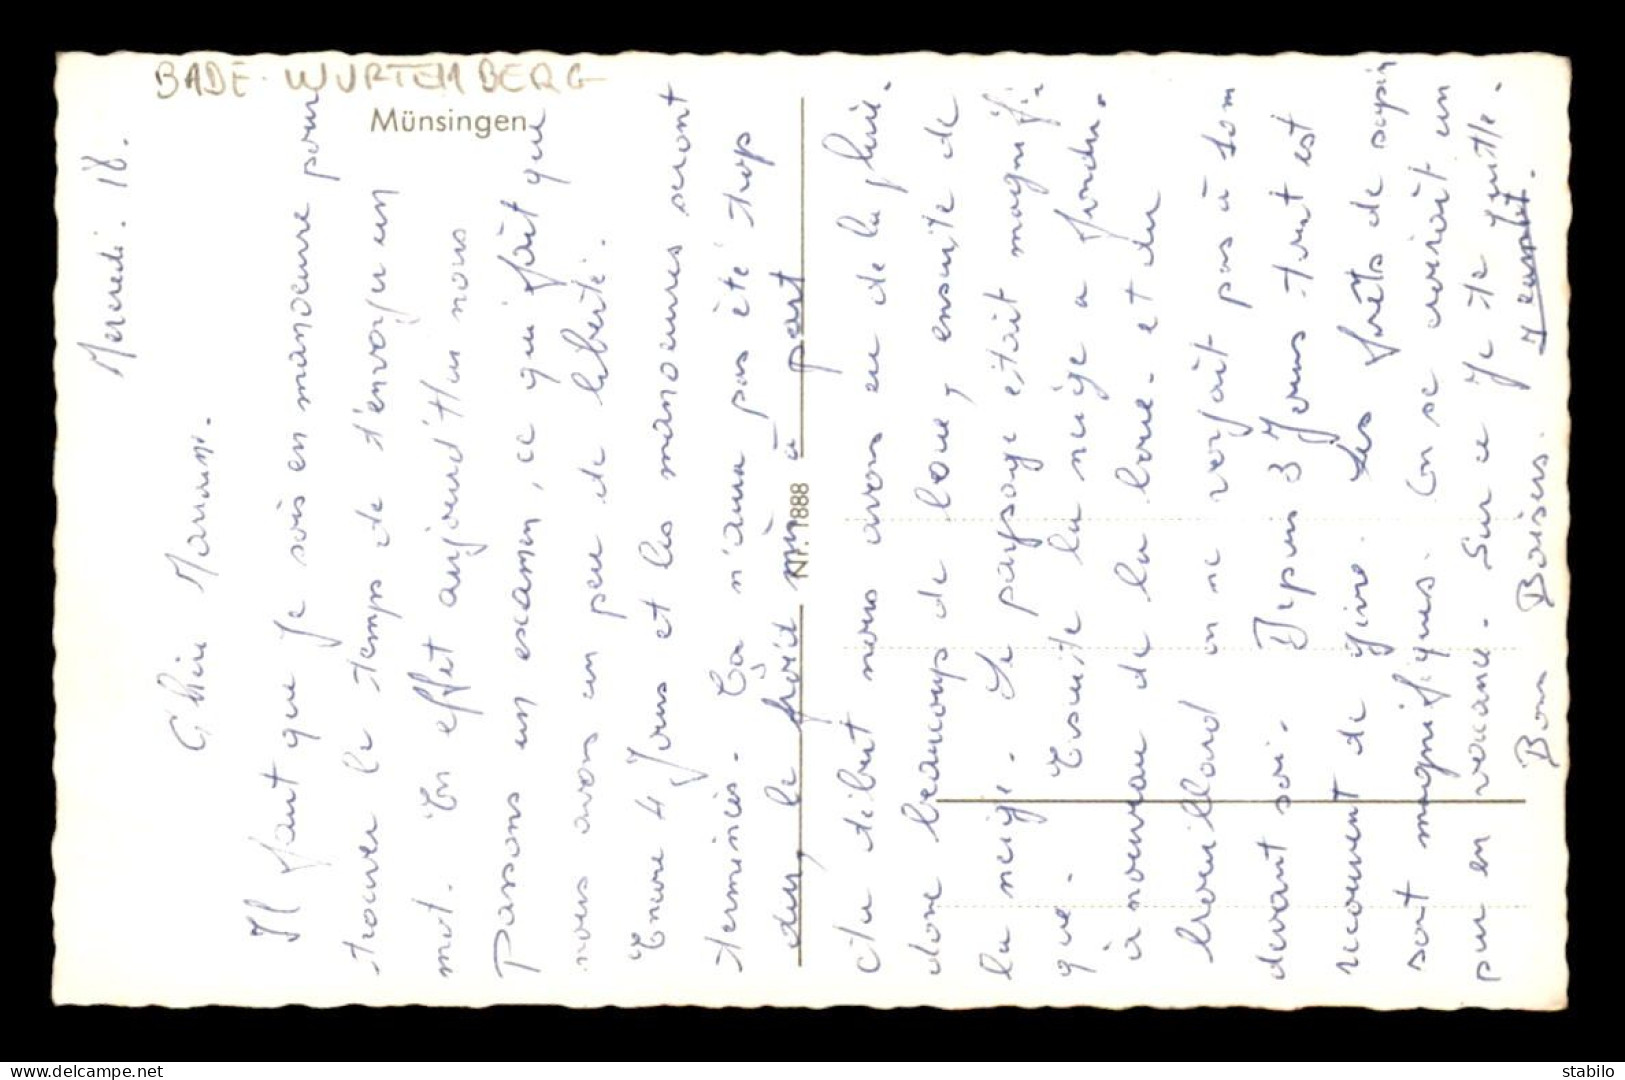 BADE-WURTEMBERG
Münsingen
Nr. 1888
Mercredi. 18.
Chère Maman.
Il faut que je sois en manoeuvre pour
trouver le temps de t'envoyer un
mot. En effet aujourd'hui nous
Passons un examen, ce qui fait que
nous avons un peu de liberté.
Encore 4 Jours et les manoeuvres seront
terminés. Ça n'aura pas été trop
dur, le froid mis à part
Au début nous avons eu de la pluie.
donc beaucoup de boue, ensuite de
la neige. Le paysage était magnifi-
que. Ensuite la neige a fondu.
à nouveau de la boue. et du
brouillard on ne voyait pas à 10m
devant soi. Depuis 3 Jours tout est
recouvert de givre. Les forêts de sapin
sont magnifiques. On se croirait un
peu en vacance. Sur ce Je te quitte.
Bons Baisers.
delcampe.net
stabilo